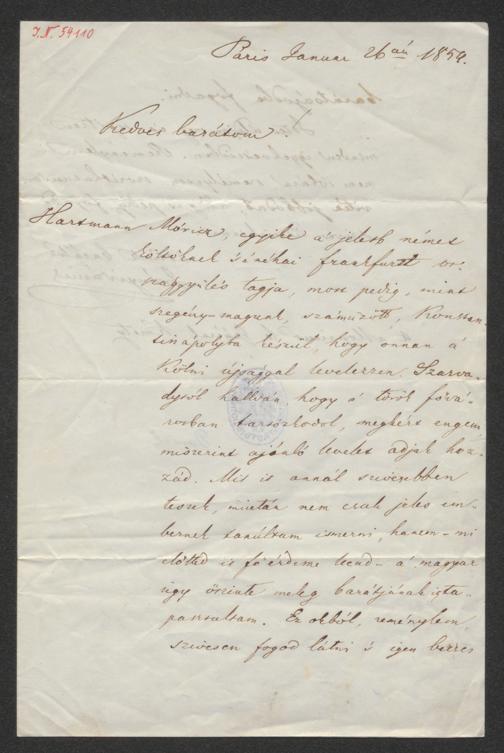 I.N. 54110
Páris Januar 26án 1854.
Kedves barátom!
Hartmann Móricz, egyike a jelesb német
költőknek s néhai frankfurti or-
szággyűlés tagja, most pedig, mint
szegény magunk száműzött, Konstan-
tinápolyba készűl, hogy onnan a
Kölni újsággal levelezzen. Szarva-
dysól hallván hogy ő török fővá-
rosban tartózkodol, megkért engem
miszerint ajánló levelet adjak hoz-
zád. Mit is annál szivesebben
teszek, miután nem csak jeles em-
bernek tanúltam ismerni, hanem – mi
előtted is fő érdeme leend – a magyar
ügy őszinte meleg barátjának is ta-
pasztaltam. Ez okból, reménylem,
szivesen fogod látni s igen becses